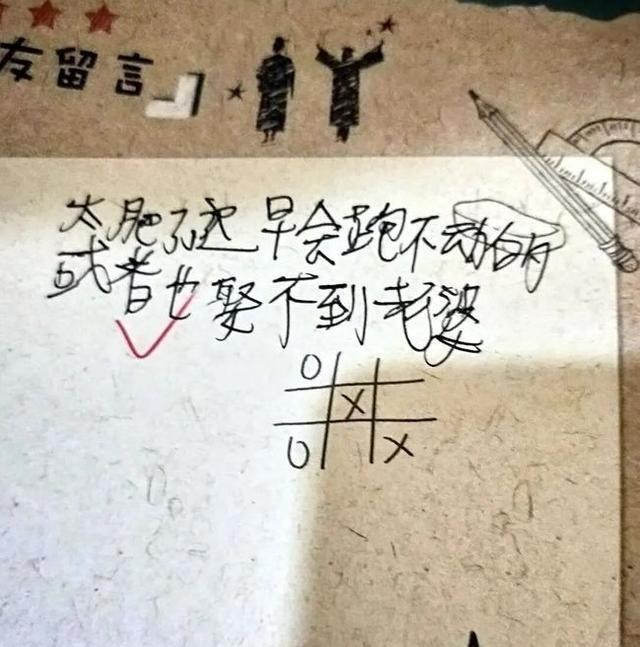 友留言
太肥了迟早会跑不动的
或者也娶不到老婆
O
X
O X